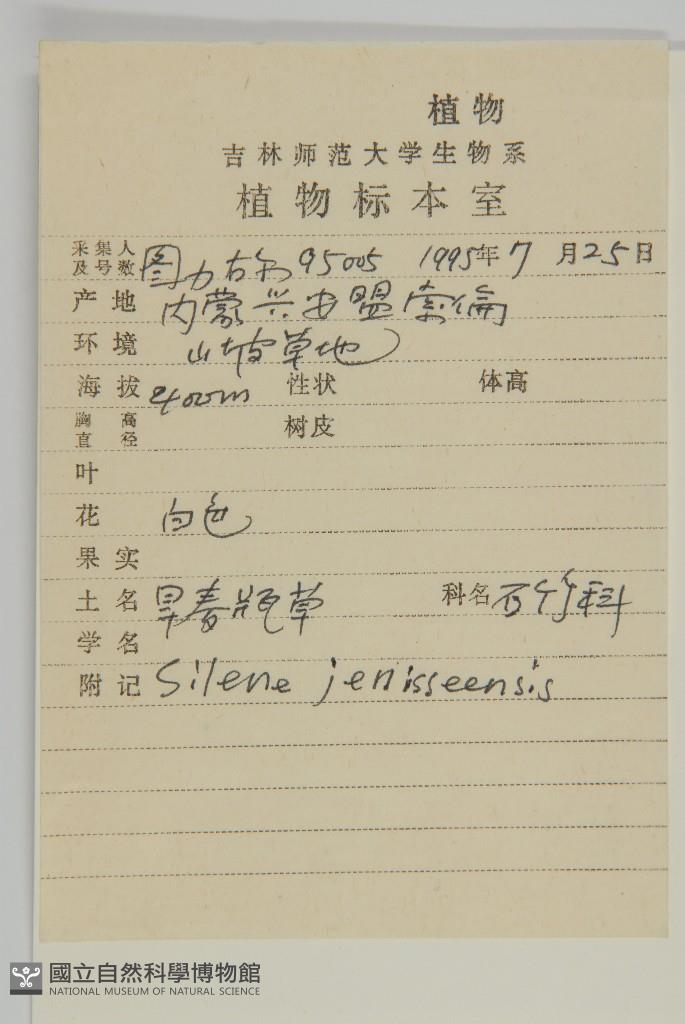 植物
吉林师范大学生物系
植物标本室
采集人及号数 图力古尔 95005 1995年7月25日
产地 内蒙兴安盟索倫
环境 山坡草地
海拔 400m 性状 体高
胸高直径 树皮
叶
花 白色
果实
土名 旱春瓶草 科名 石竹科
学名
附记 Silene jenisseensis
國立自然科學博物館
NATIONAL MUSEUM OF NATURAL SCIENCE